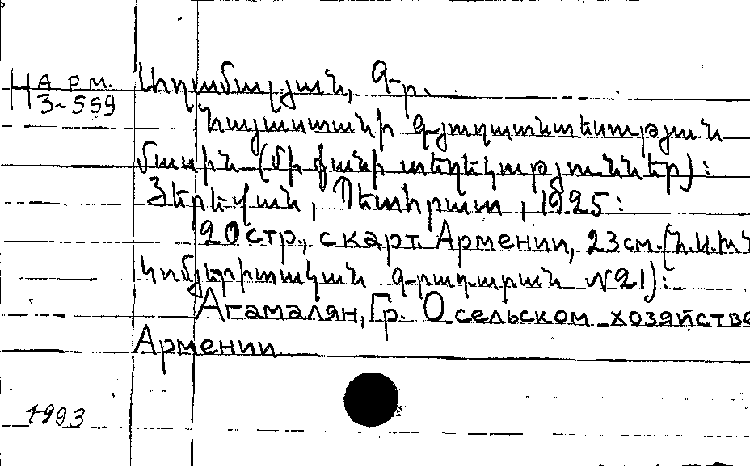 На арм.
3-559
Աղամալյան, Գր.
Հայաստանի գյուղատնտեսության
մասին (մի քանի տեղեկություններ)։
Յերևան, Պետհրատ, 1925։
20 стр., с карт. Армении, 23 см. (Հ.Ս.Խ.Հ
կոմյերիտական գրադարան №21)։
Агамалян, Гр. О сельском хозяйстве
Армении
1993